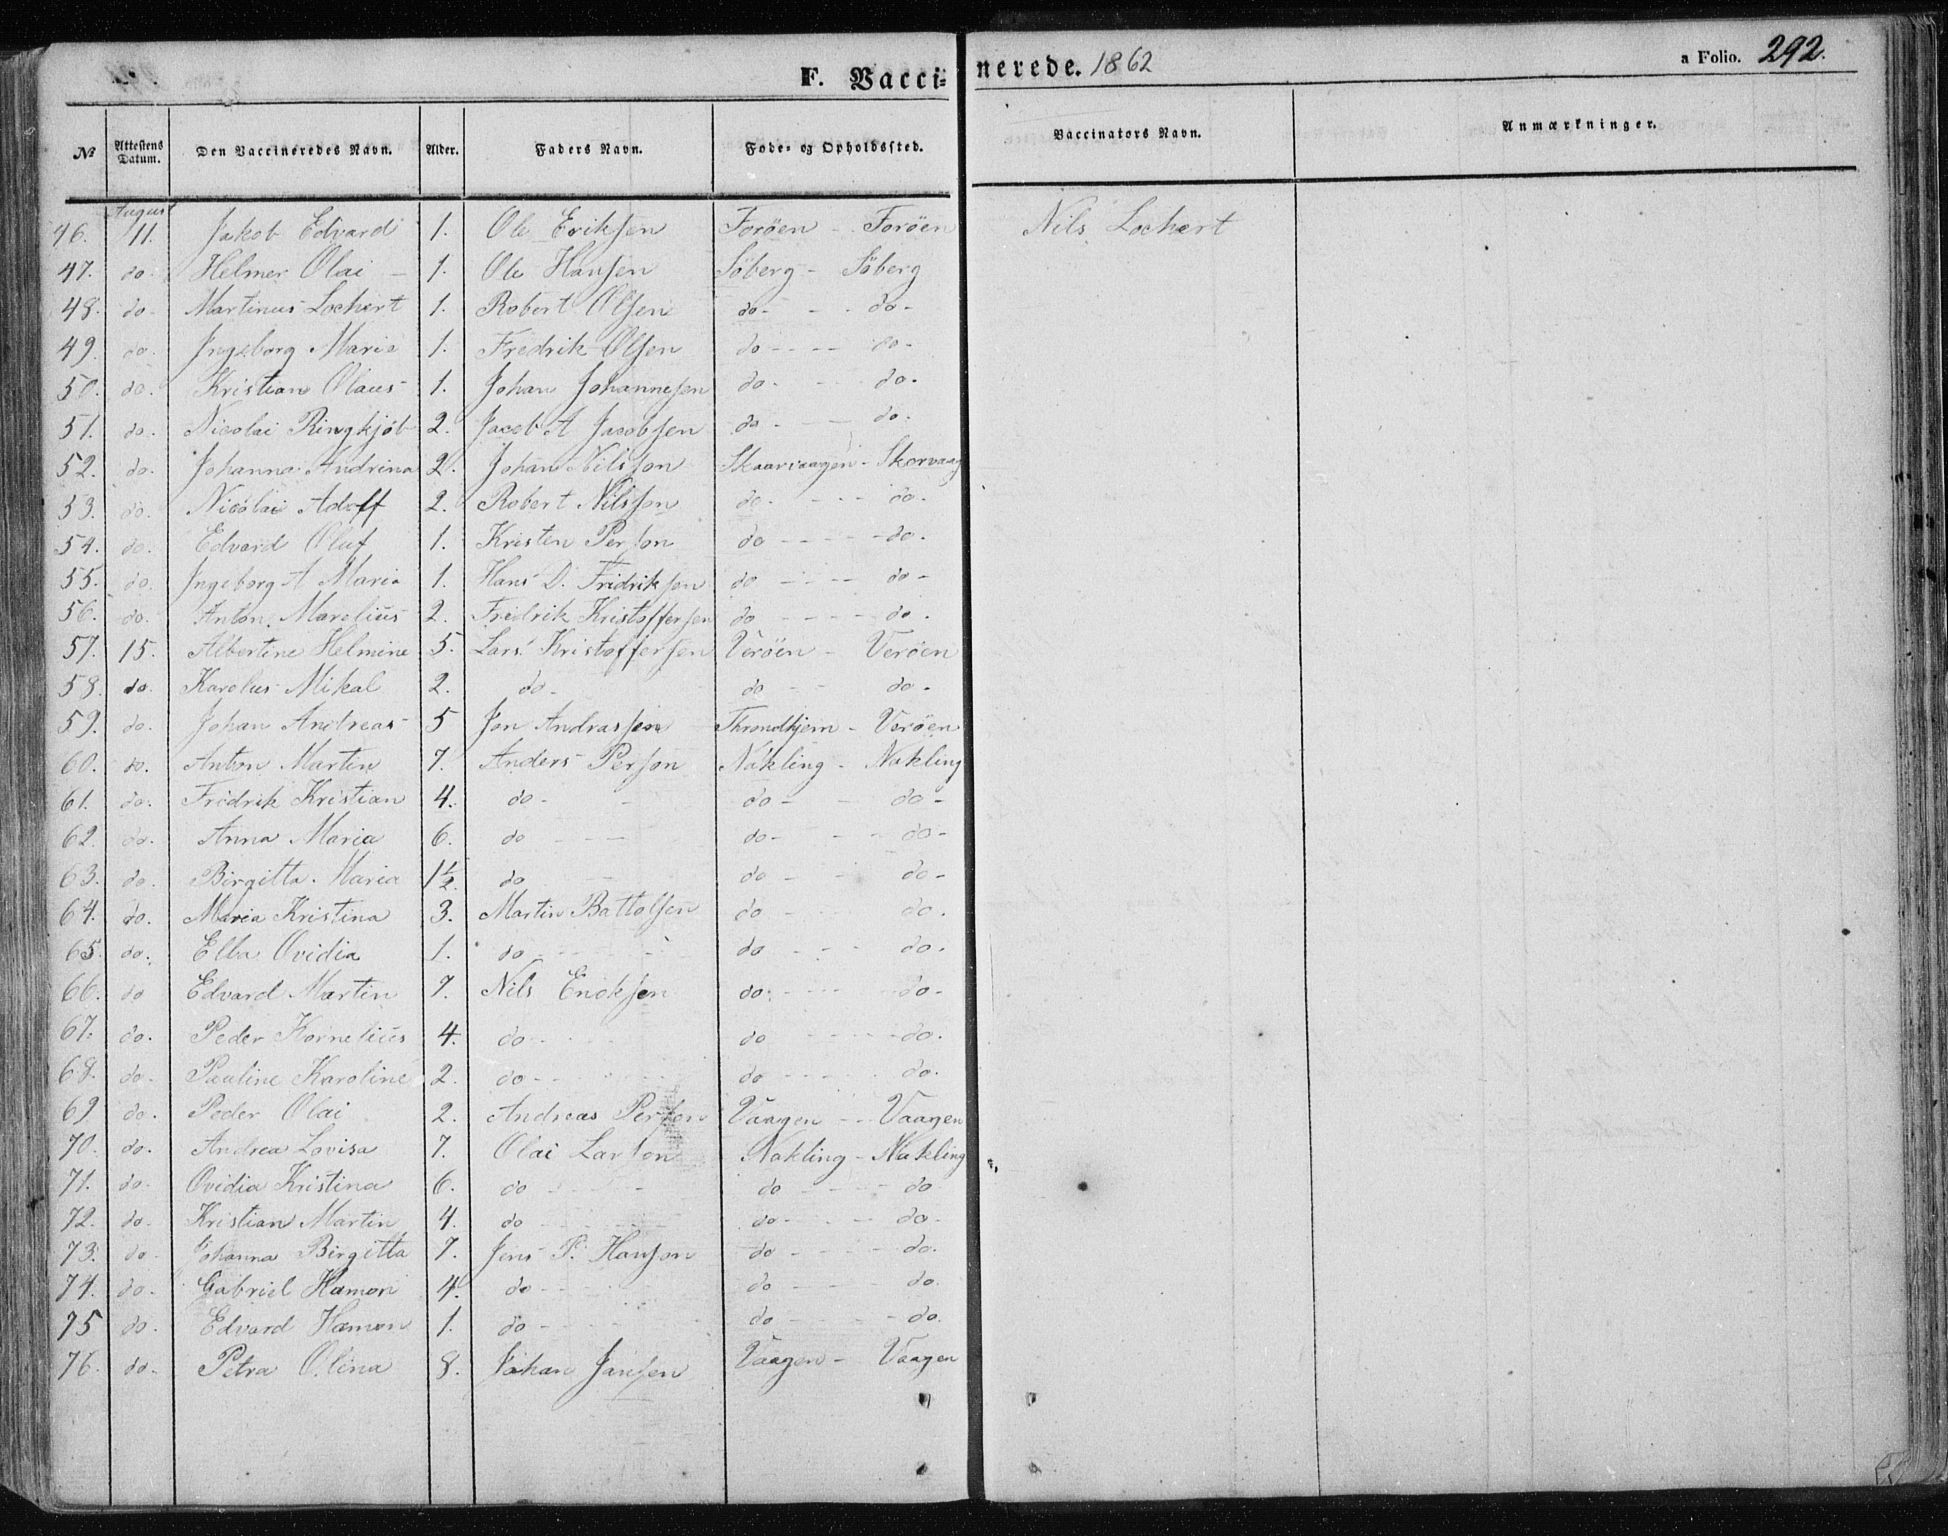 F. Vaccinerede. 1862 a Folio. 292.
№ Attestens Datum. Den Vaccineredes Navn. Alder. Faders Navn. Føde- og Opholdssted. Vaccinators Navn. Anmærkninger.
August
46. 11. Jakob Edvard 1. Ole Eriksen Forøen - Forøen Nils Lochert
47. do. Helmer Olai 1. Ole Hansen Søberg - Søberg
48. do. Martinus Lochert 1. Robert Olsen do - - do -
49. do. Ingeborg Marie 1. Fredrik Olsen do - - - do -
50. do. Kristian Olaus 1. Johan Johannesen do - - do -
51. do. Nicolai Ringkjøb 2. Jacob A Jacobsen do - - do -
52. do. Johanna Andrina 2. Johan Nilsson Skaarvaagen - Skorvaag
53. do. Nicolai Adolf 2. Robert Nilsson do - - - do -
54. do. Edvard Oluf 1. Kristen Person do - - - - do.
55. do. Ingeborg A Maria 1. Hans D. Fridriksen do - - - do -
56. do. Anton Marelius 2. Fredrik Kristoffersen do - - - do.
57. 15. Albertine Helmine 5. Lars Kristoffersen Verøen - Verøen
58. do. Karolus Mikal 2. do - do - - do -
59. do. Johan Andreas 5 Jon Andrassen Throndhjem - Verøen
60. do. Anton Martin 7. Anders Person Nakling - Nakling
61. do. Fredrik Kristian 4. do - do - - do -
62. do. Anna Maria 6. do - - do - - - do -
63. do. Birgitta Maria 1½. do do - - - do -
64. do. Maria Kristina 3. Martin Battolsen do - - do.
65. do. Elba Ovidia 1. do - - - do - - do.
66. do Edvard Martin 7. Nils Enoksen do - - - - do -
67. do. Peder Kornelius 4. do - - do - - - do.
68. do. Pauline Karoline 2. do - - - do - - - do.
69 do. Peder Olai 2. Andreas Person Vaagen - - Vaagen
70. do. Andrea Lovisa 7. Olai Larson Nakling - Nakling
71. do. Ovidia Kristina 6. do - - - do - - - do
72. do. Kristian Martin 4. do - - - do - - - do -
73. do. Johanna Birgitta 7. Jens P. Hanson do - - - do.
74. do. Gabriel Hamon 4. do - - do - - - do.
75 do. Edvard Hamon 1. do - - - do - - - do.
76. do. Petra Olina 8. Johan Jansen Vaagen - Vaagen